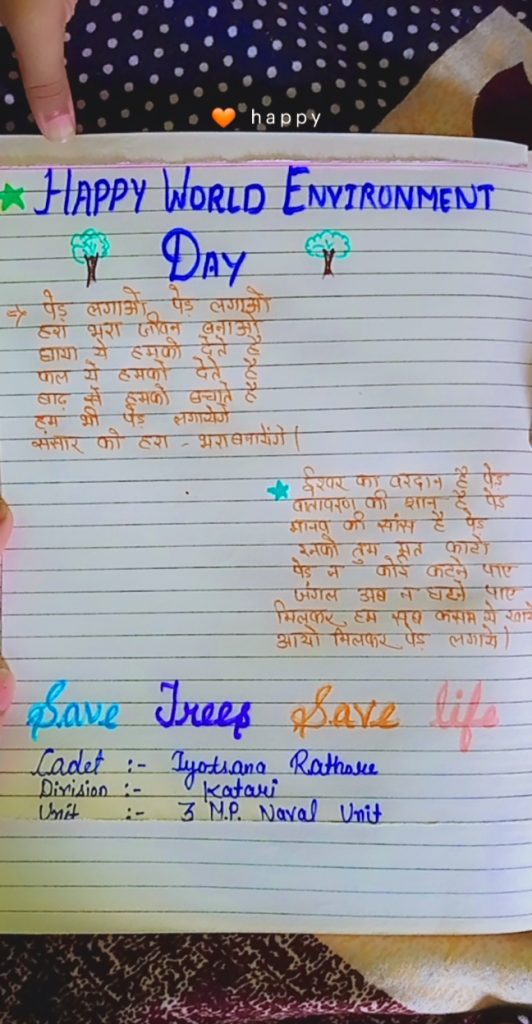 🧡 happy
HAPPY WORLD ENVIRONMENT
DAY
⇒ पेड़ लगाओ, पेड़ लगाओ
हरा भरा जीवन बनाओ
छाया ये हमको देते है
फल ये हमको देते है
बाढ़ से हमको बचाते है
हम भी पेड़ लगायेंगे
संसार को हरा - भरा बनायेंगे।
ईश्वर का वरदान है पेड़
वातावरण की शान है पेड़
मानव की सांस है पेड़
इनको तुम मत काटो
पेड़ न कोई कटने पाए
जंगल अब न घटने पाए
मिलकर हम सब कसम ये खाये
आयो मिलकर पेड़ लगाये।
Save Trees Save life
Cadet :- Jyotsana Rathore
Division :- Katari
Unit :- 3 M.P. Naval Unit